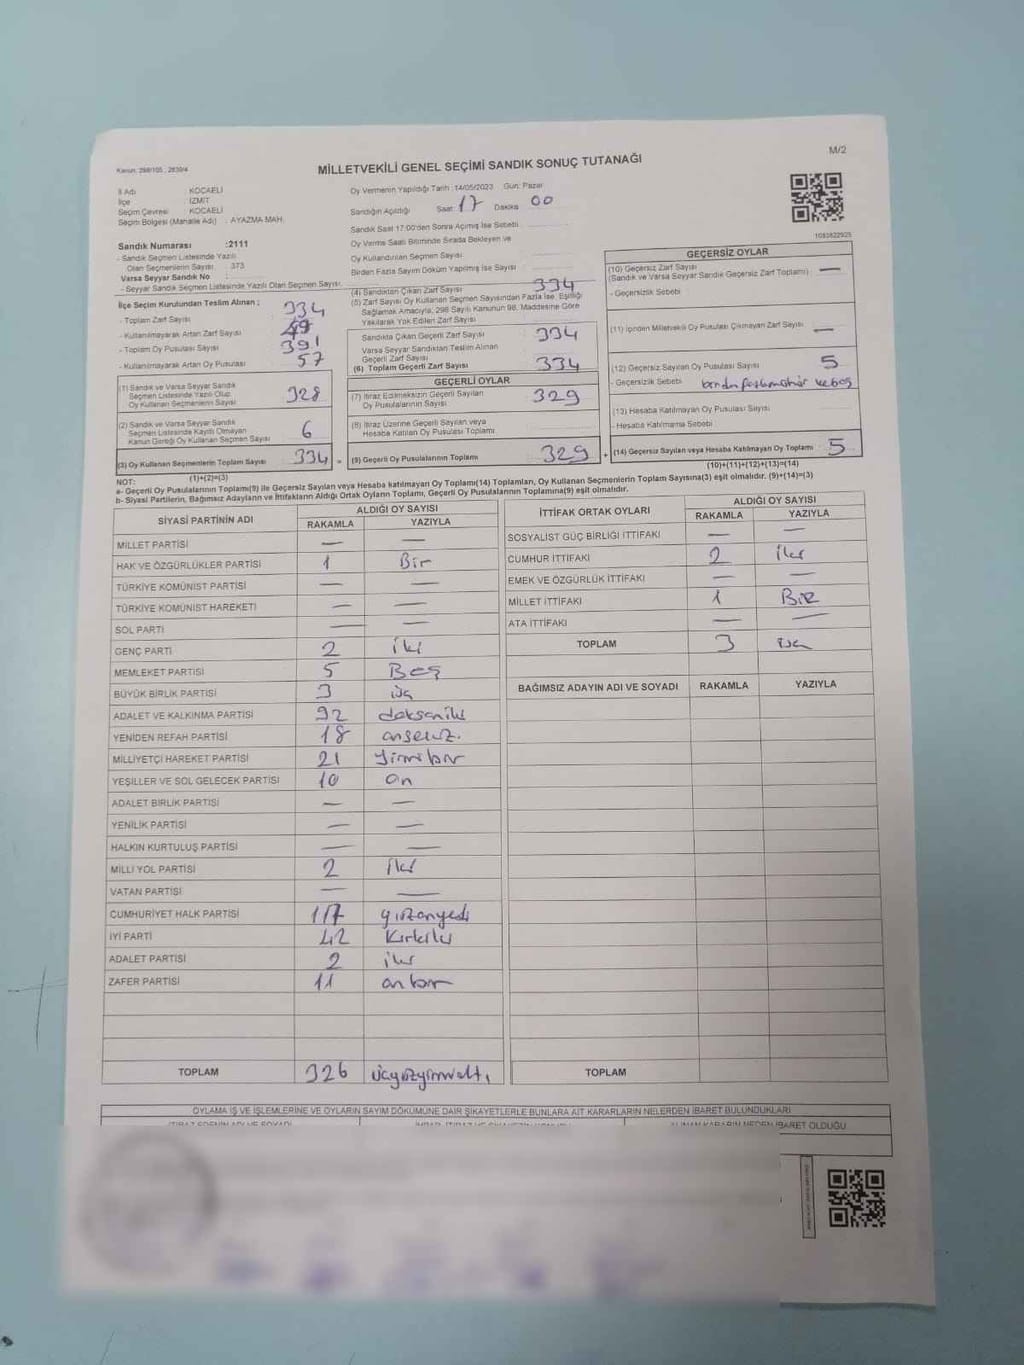 Kanun: 298/105 ; 2839/4
M/2
MİLLETVEKİLİ GENEL SEÇİMİ SANDIK SONUÇ TUTANAĞI
İl Adı : KOCAELİ
İlçe : İZMİT
Seçim Çevresi : KOCAELİ
Seçim Bölgesi (Mahalle Adı) : AYAZMA MAH.
Sandık Numarası :2111
- Sandık Seçmen Listesinde Yazılı
Olan Seçmenlerin Sayısı : 373
Varsa Seyyar Sandık No :
- Seyyar Sandık Seçmen Listesinde Yazılı Olan Seçmen Sayısı:
Oy Vermenin Yapıldığı Tarih :14/05/2023 Gün: Pazar
Sandığın Açıldığı Saat: 17 Dakika 00
Sandık Saat 17:00'den Sonra Açılmış İse Sebebi :
Oy Verme Saati Bitiminde Sırada Bekleyen ve
Oy Kullandırılan Seçmen Sayısı
Birden Fazla Sayım Döküm Yapılmış İse Sayısı :
1083822925
İlçe Seçim Kurulundan Teslim Alınan ;
- Toplam Zarf Sayısı : 334
- Kullanılmayarak Artan Zarf Sayısı
- Toplam Oy Pusulası Sayısı : 391
- Kullanılmayarak Artan Oy Pusulası : 57
(1) Sandık ve Varsa Seyyar Sandık
Seçmen Listesinde Yazılı Olup
Oy Kullanan Seçmenlerin Sayısı 328
(2) Sandık ve Varsa Seyyar Sandık
Seçmen Listesinde Kayıtlı Olmayan
Kanun Gereği Oy Kullanan Seçmen Sayısı 6
(3) Oy Kullanan Seçmenlerin Toplam Sayısı 334 =
(1)+(2)=(3)
(4) Sandıktan Çıkan Zarf Sayısı 334
(5) Zarf Sayısı Oy Kullanan Seçmen Sayısından Fazla İse, Eşitliği
Sağlamak Amacıyla, 298 Sayılı Kanunun 98. Maddesine Göre
Yakılarak Yok Edilen Zarf Sayısı
Sandıkta Çıkan Geçerli Zarf Sayısı : 334
Varsa Seyyar Sandıktan Teslim Alınan
Geçerli Zarf Sayısı
(6) Toplam Geçerli Zarf Sayısı : 334
GEÇERLİ OYLAR
(7) İtiraz Edilmeksizin Geçerli Sayılan
Oy Pusulalarının Sayısı 329
(8) İtiraz Üzerine Geçerli Sayılan veya
Hesaba Katılan Oy Pusulası Toplamı
(9) Geçerli Oy Pusulalarının Toplamı : 329 +
GEÇERSİZ OYLAR
(10) Geçersiz Zarf Sayısı
(Sandık ve Varsa Seyyar Sandık Geçersiz Zarf Toplamı) : —
- Geçersizlik Sebebi
(11) İçinden Milletvekili Oy Pusulası Çıkmayan Zarf Sayısı : —
(12) Geçersiz Sayılan Oy Pusulası Sayısı : 5
- Geçersizlik Sebebi
(13) Hesaba Katılmayan Oy Pusulası Sayısı :
- Hesaba Katılmama Sebebi
(14) Geçersiz Sayılan veya Hesaba Katılmayan Oy Toplamı : 5
(10)+(11)+(12)+(13)=(14)
NOT:
a- Geçerli Oy Pusulalarının Toplamı(9) ile Geçersiz Sayılan veya Hesaba katılmayan Oy Toplamı(14) Toplamları, Oy Kullanan Seçmenlerin Toplam Sayısına(3) eşit olmalıdır. (9)+(14)=(3)
b- Siyasi Partilerin, Bağımsız Adayların ve İttifakların Aldığı Ortak Oyların Toplamı, Geçerli Oy Pusulalarının Toplamına(9) eşit olmalıdır.
SİYASİ PARTİNİN ADI ALDIĞI OY SAYISI
RAKAMLA YAZIYLA
MİLLET PARTİSİ — —
HAK VE ÖZGÜRLÜKLER PARTİSİ 1 Bir
TÜRKİYE KOMÜNİST PARTİSİ — —
TÜRKİYE KOMÜNİST HAREKETİ — —
SOL PARTİ — —
GENÇ PARTİ 2 iki
MEMLEKET PARTİSİ 5 Beş
BÜYÜK BİRLİK PARTİSİ 3 üç
ADALET VE KALKINMA PARTİSİ 92 doksaniki
YENİDEN REFAH PARTİSİ 18 onsekiz.
MİLLİYETÇİ HAREKET PARTİSİ 21 yirmibir
YEŞİLLER VE SOL GELECEK PARTİSİ 10 on
ADALET BİRLİK PARTİSİ — —
YENİLİK PARTİSİ — —
HALKIN KURTULUŞ PARTİSİ — —
MİLLİ YOL PARTİSİ 2 iki
VATAN PARTİSİ — —
CUMHURİYET HALK PARTİSİ 117 yüzonyedi
İYİ PARTİ 42 Kırkiki
ADALET PARTİSİ 2 iki
ZAFER PARTİSİ 11 onbir
TOPLAM 326 üçyüzyirmialtı
İTTİFAK ORTAK OYLARI ALDIĞI OY SAYISI
RAKAMLA YAZIYLA
SOSYALİST GÜÇ BİRLİĞİ İTTİFAKI — —
CUMHUR İTTİFAKI 2 iki
EMEK VE ÖZGÜRLÜK İTTİFAKI — —
MİLLET İTTİFAKI 1 BİR
ATA İTTİFAKI — —
TOPLAM 3 üç
BAĞIMSIZ ADAYIN ADI VE SOYADI RAKAMLA YAZIYLA
TOPLAM
OYLAMA İŞ VE İŞLEMLERİNE VE OYLARIN SAYIM DÖKÜMÜNE DAİR ŞİKAYETLERLE BUNLARA AİT KARARLARIN NELERDEN İBARET BULUNDUKLARI
ALINAN KARARIN NEDEN İBARET OLDUĞU